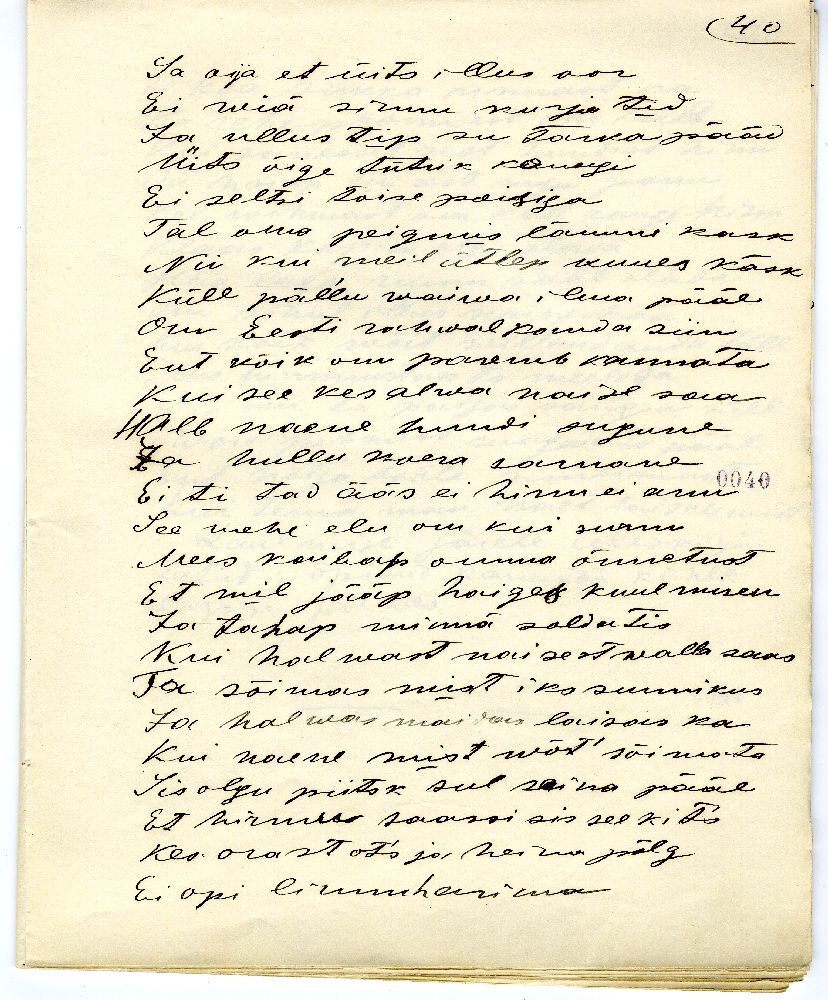 40
Sa oja et üits illus oor
Ei wiä sinnu kurja tid
Ja ullus tip su tarka pääd
Üits õige tütrik kunagi
Ei seltsi tõise poisiga
Täl oma peigmus lämmi kask
Nii kui meil ütlep kuues käsk
Küll pallu waiwa ilma pääl
Om Eesti rahwal kanda siin
Ent kõik om paremb kannata
Kui see kes alwa naise saa
Halb naene hundi sugune
Ja hullu koera sarnane
Ei ti tad ääs ei hirm ei arm
See mehe elu om kui surm
Mees kaibap omma õnnetust
Et mil jääp haiges kuulmisen
Ja tahap minnä soldatis
Kui halwast naisest walla saas
Ta sõimas mist iks sunnikus
Ja halwas mäidas laisas ka
Kui naene mist wõt' sõimata
Sis olgu piitsk sul seina pääl
Et hirmu saassi sis see kits
Kes orast ots ja heina pälg
Ei opi
0040